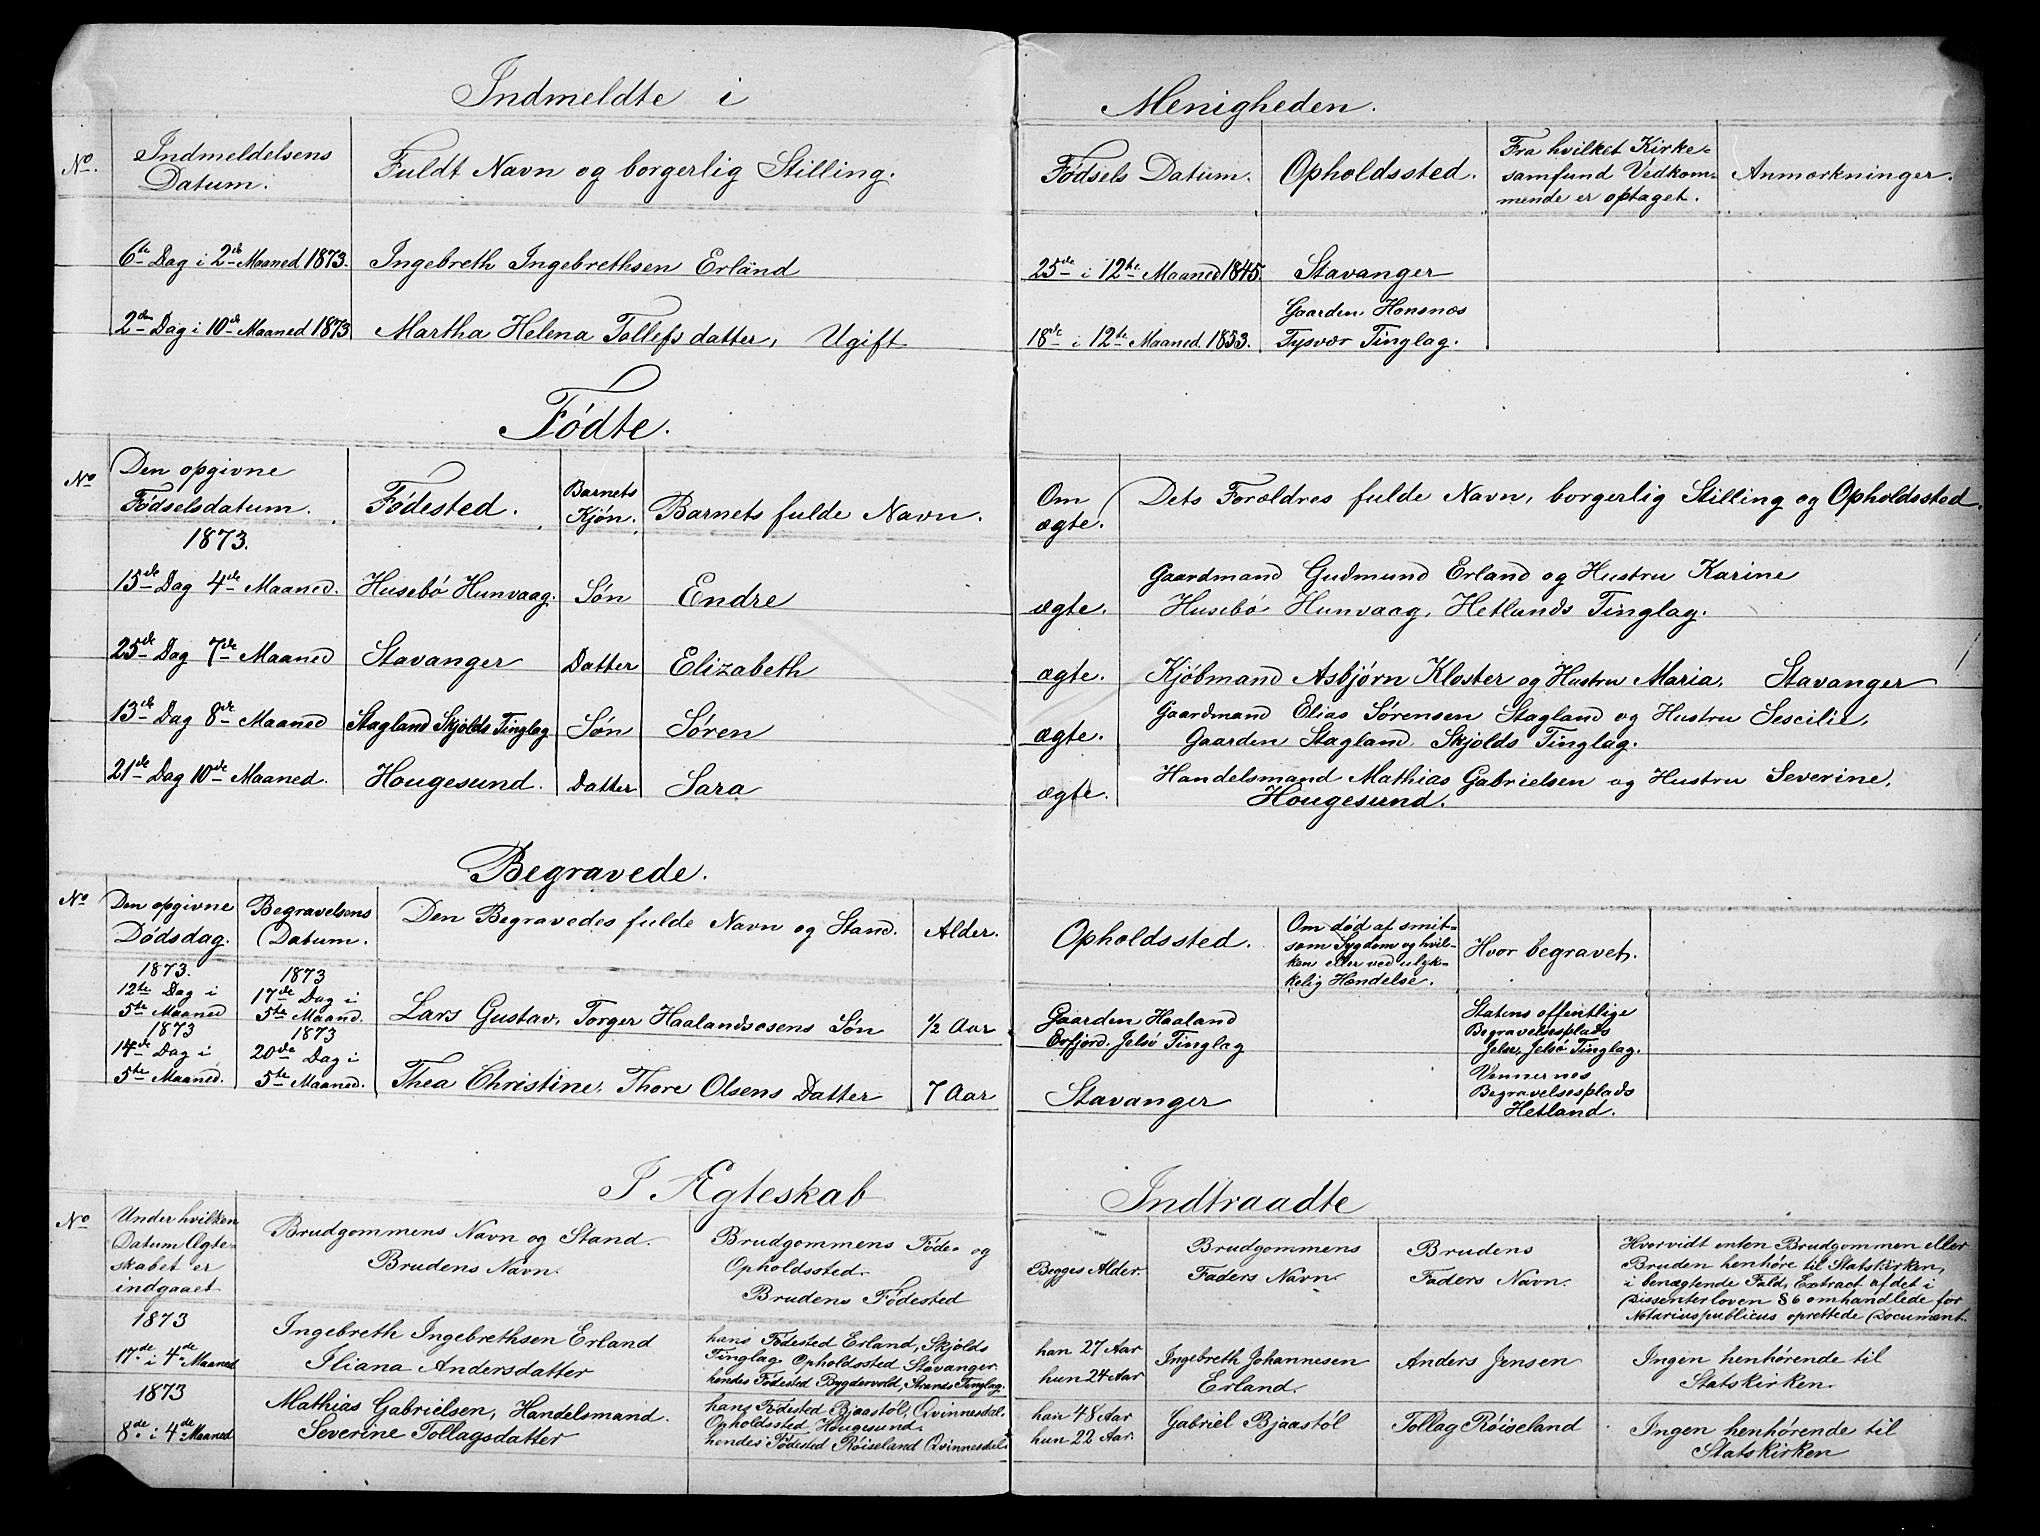 Indmeldte i Menigheden.
No. Indmeldelsens Datum. Fuldt Navn og borgerlig Stilling. Fødsels Datum. Opholdssted. Fra hvilket Kirke= samfund Vedkom= mende er optaget. Anmærkninger.
6te Dag i 2de Maaned 1873. Ingebreth Ingebrethsen Erland 25de i 12te Maaned 1845. Stavanger
2den Dag i 10de Maaned 1873 Martha Helena Tollefsdatter, Ugift 18de i 12te Maaned. 1853. Gaarden Hønsnæs Tysvær Tinglag.
Fødte.
No Den opgivne Fødselsdatum. 1873. Fødested. Barnets Kjøn. Barnets fulde Navn. Om ægte. Dets Forældres fulde Navn, borgerlig Stilling og Opholdssted.
15de Dag 4de Maaned. Husebø Hunvaag. Søn Endre ægte. Gaardmand Gudmund Erland og Hustru Karine Husebø Hunvaag, Hetlands Tinglag.
25de Dag 7de Maaned Stavanger Datter Elizabeth ægte. Kjøbmand Asbjørn Kloster og Hustru Maria. Stavanger
13de Dag 8de Maaned Stagland Skjolds Tinglag Søn Søren ægte. Gaardmand Elias Sørensen Stagland og Hustru Sescilie, Gaarden Stagland, Skjolds Tinglag.
21de Dag 10de Maaned. Hougesund. Datter Sara ægte. Handelsmand Mathias Gabrielsen og Hustru Severine, Hougesund.
Begravede.
No Den opgivne Dødsdag. Begravelsens Datum. Den Begravedes fulde Navn og Stand. Alder. Opholdssted. Om død af smit= som Sygdom og hvil= ken eller ved ulyk= kelig Hændelse. Hvor begravet.
1873. 12te Dag i 5te Maaned 1873 17de Dag i 5te Maaned. Lars Gustav, Torger Haalandsosens Søn 1/2 Aar Gaarden Haaland Erfjord. Jelsø Tinglag Statens offentlige Begravelsesplads Jelse, Jelsø Tinglag.
1873 14de Dag i 5te Maaned. 1873 20de Dag i 5te Maaned. Thea Christine, Thore Olsens Datter 7 Aar Stavanger Vennernes Begravelsesplads Hetland.
I Ægteskab Indtraadte
No Under hvilken Datum Ægte= skabet er indgaaet Brudgommens Navn og Stand. Brudens Navn. Brudgommens Føde- og Opholdssted. Brudens Fødested Begges Alder. Brudgommens Faders Navn. Brudens Faders Navn. Hvorvidt enten Brudgommen eller Bruden henhøre til Statskirken, i benægtende Fald, Extract af det i Dissenterloven § 6 omhandlede for Notarius publicus oprettede Document.
1873 17de i 4de Maaned Ingebreth Ingebrethsen Erland Iliana Andersdatter hans Fødested Erland, Skjolds Tinglag Opholdssted Stavanger. hendes Fødested Bygdevold, Strands Tinglag. han 27 Aar hun 24 Aar Ingebreth Johannesen Erland. Anders Jensen Ingen henhørende til Statskirken.
1873 8de i 4de Maaned Mathias Gabrielsen, Handelsmand. Severine Tollagsdatter hans Fødested Bjaastøl, Qvinnesdal. Opholdssted Hougesund. hendes Fødested Røiseland Qvinnesdal. han 48 Aar hun 22 Aar. Gabriel Bjaastøl Tollag Røiseland Ingen henhørende til Statskirken